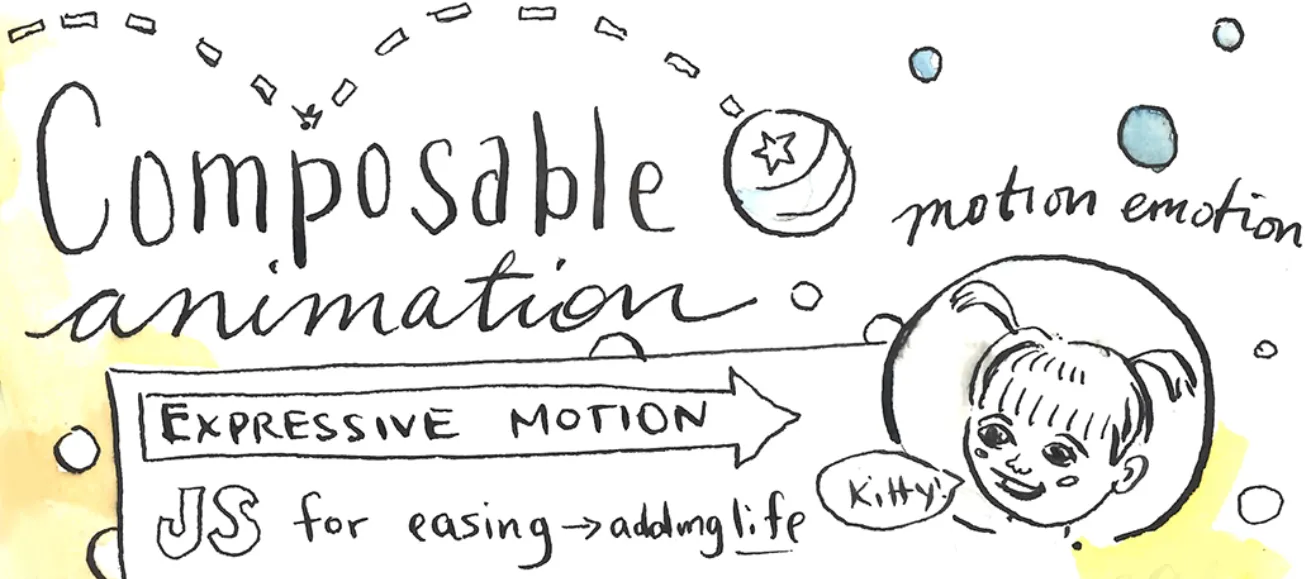 Composable
animation
motion emotion
EXPRESSIVE MOTION
Kitty!
JS for easing → adding life